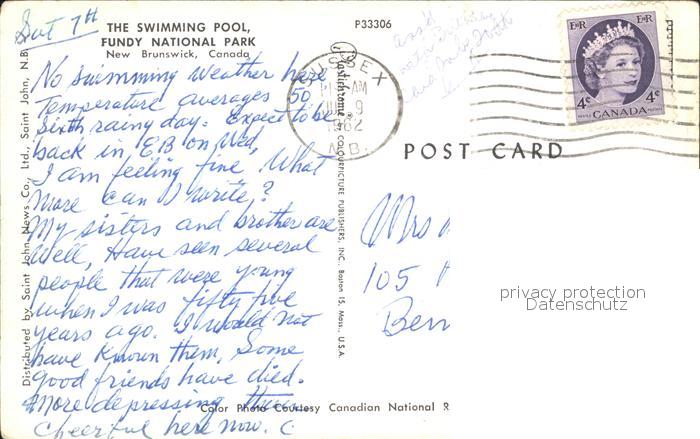 Sat 7th
THE SWIMMING POOL,
FUNDY NATIONAL PARK
New Brunswick, Canada
P33306
No swimming weather here
Temperature averages 50
Sixth rainy day. Expect to be
back in EB on Wed,
I am feeling fine What
more can I write?
My sisters and brother are
well, Have seen several
people that were young
when I was fifty five
years ago. I would not
have known them, Some
good friends have died.
More depressing than
cheerful here now. C
Distributed by Saint John News Co., Ltd., Saint John, N.B.
by COLOURPICTURE PUBLISHERS, INC., Boston 15, Mass., U.S.A.
Color Photo Courtesy Canadian National R
SUSSEX
AM
9
1962
N.B.
E·R
E·R
4¢
4¢
CANADA
POST CARD
Mrs
105
Ben
privacy protection
Datenschutz